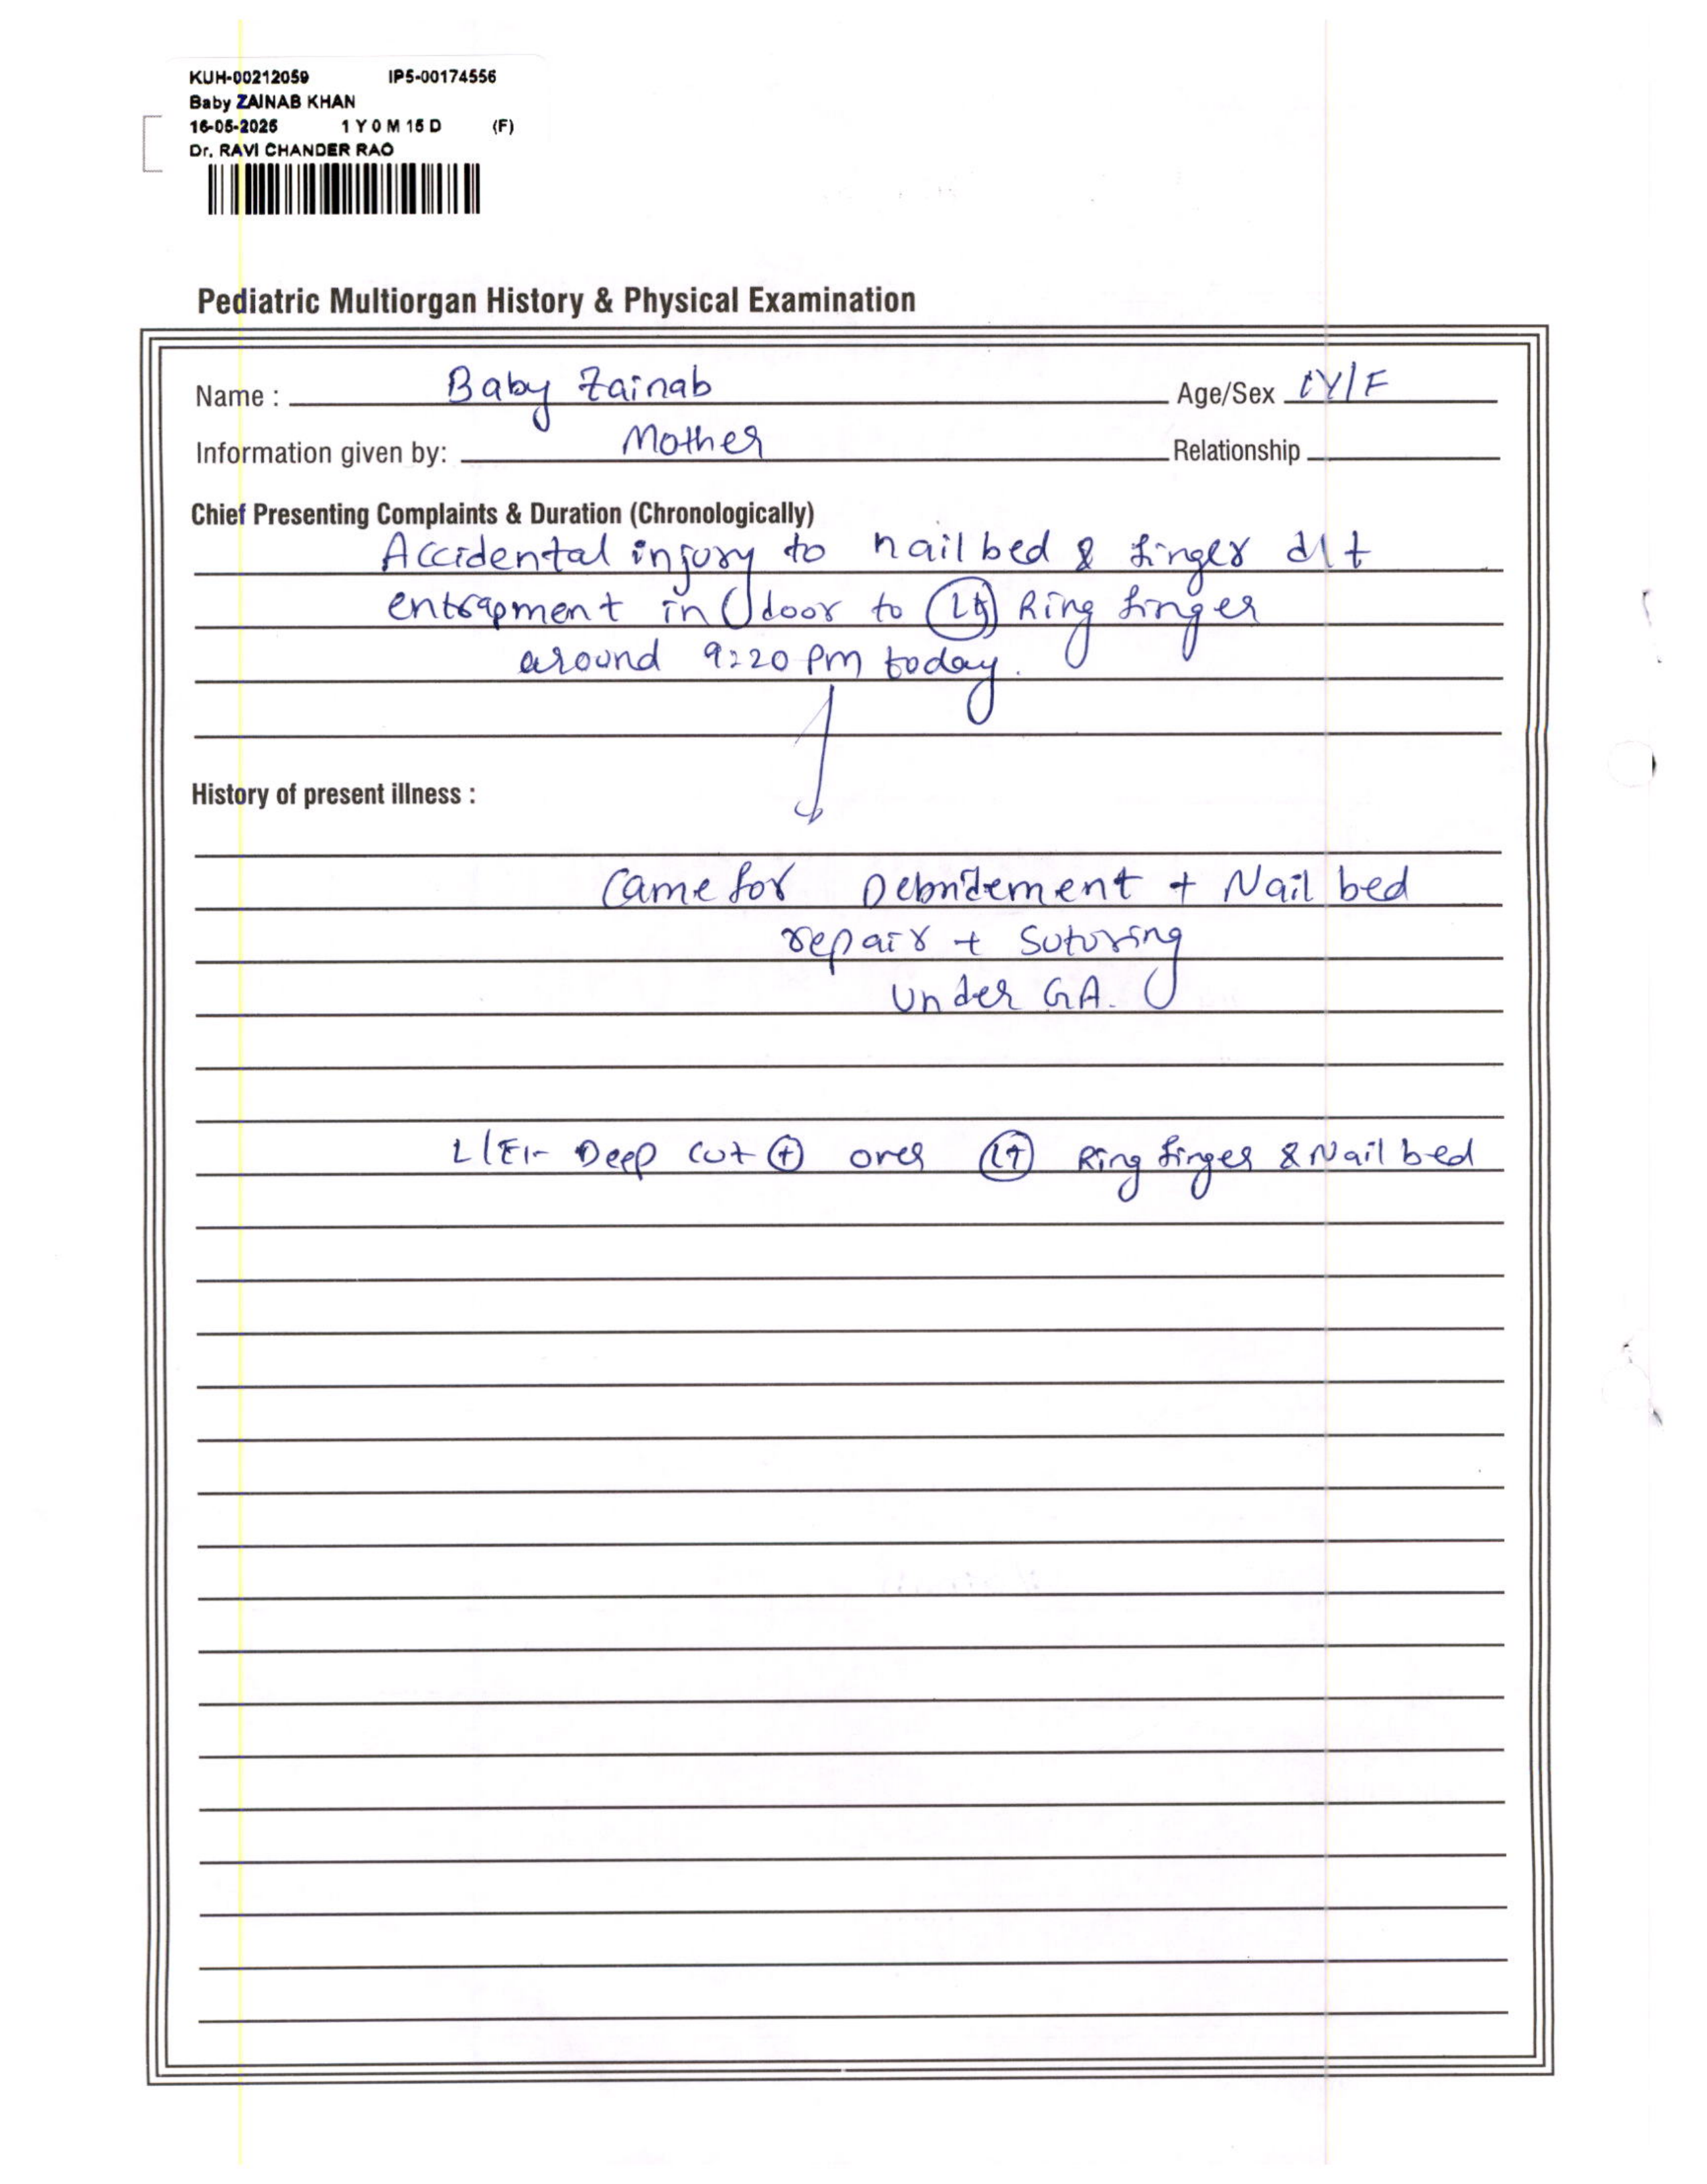 KUH-00212059 IP5-00174556
Baby ZAINAB KHAN
16-05-2025 1 Y 0 M 15 D (F)
Dr. RAVI CHANDER RAO
Pediatric Multiorgan History & Physical Examination
Name : Baby Zainab Age/Sex 1Y/F
Information given by: Mother Relationship
Chief Presenting Complaints & Duration (Chronologically)
Accidental injury to nail bed & finger d/t
entrapment in door to Lt Ring finger
around 9:20 PM today.
History of present illness :
Came for Debridement + Nail bed
repair + Suturing
Under GA.
L/E:- Deep cut + over Lt Ring finger & Nail bed